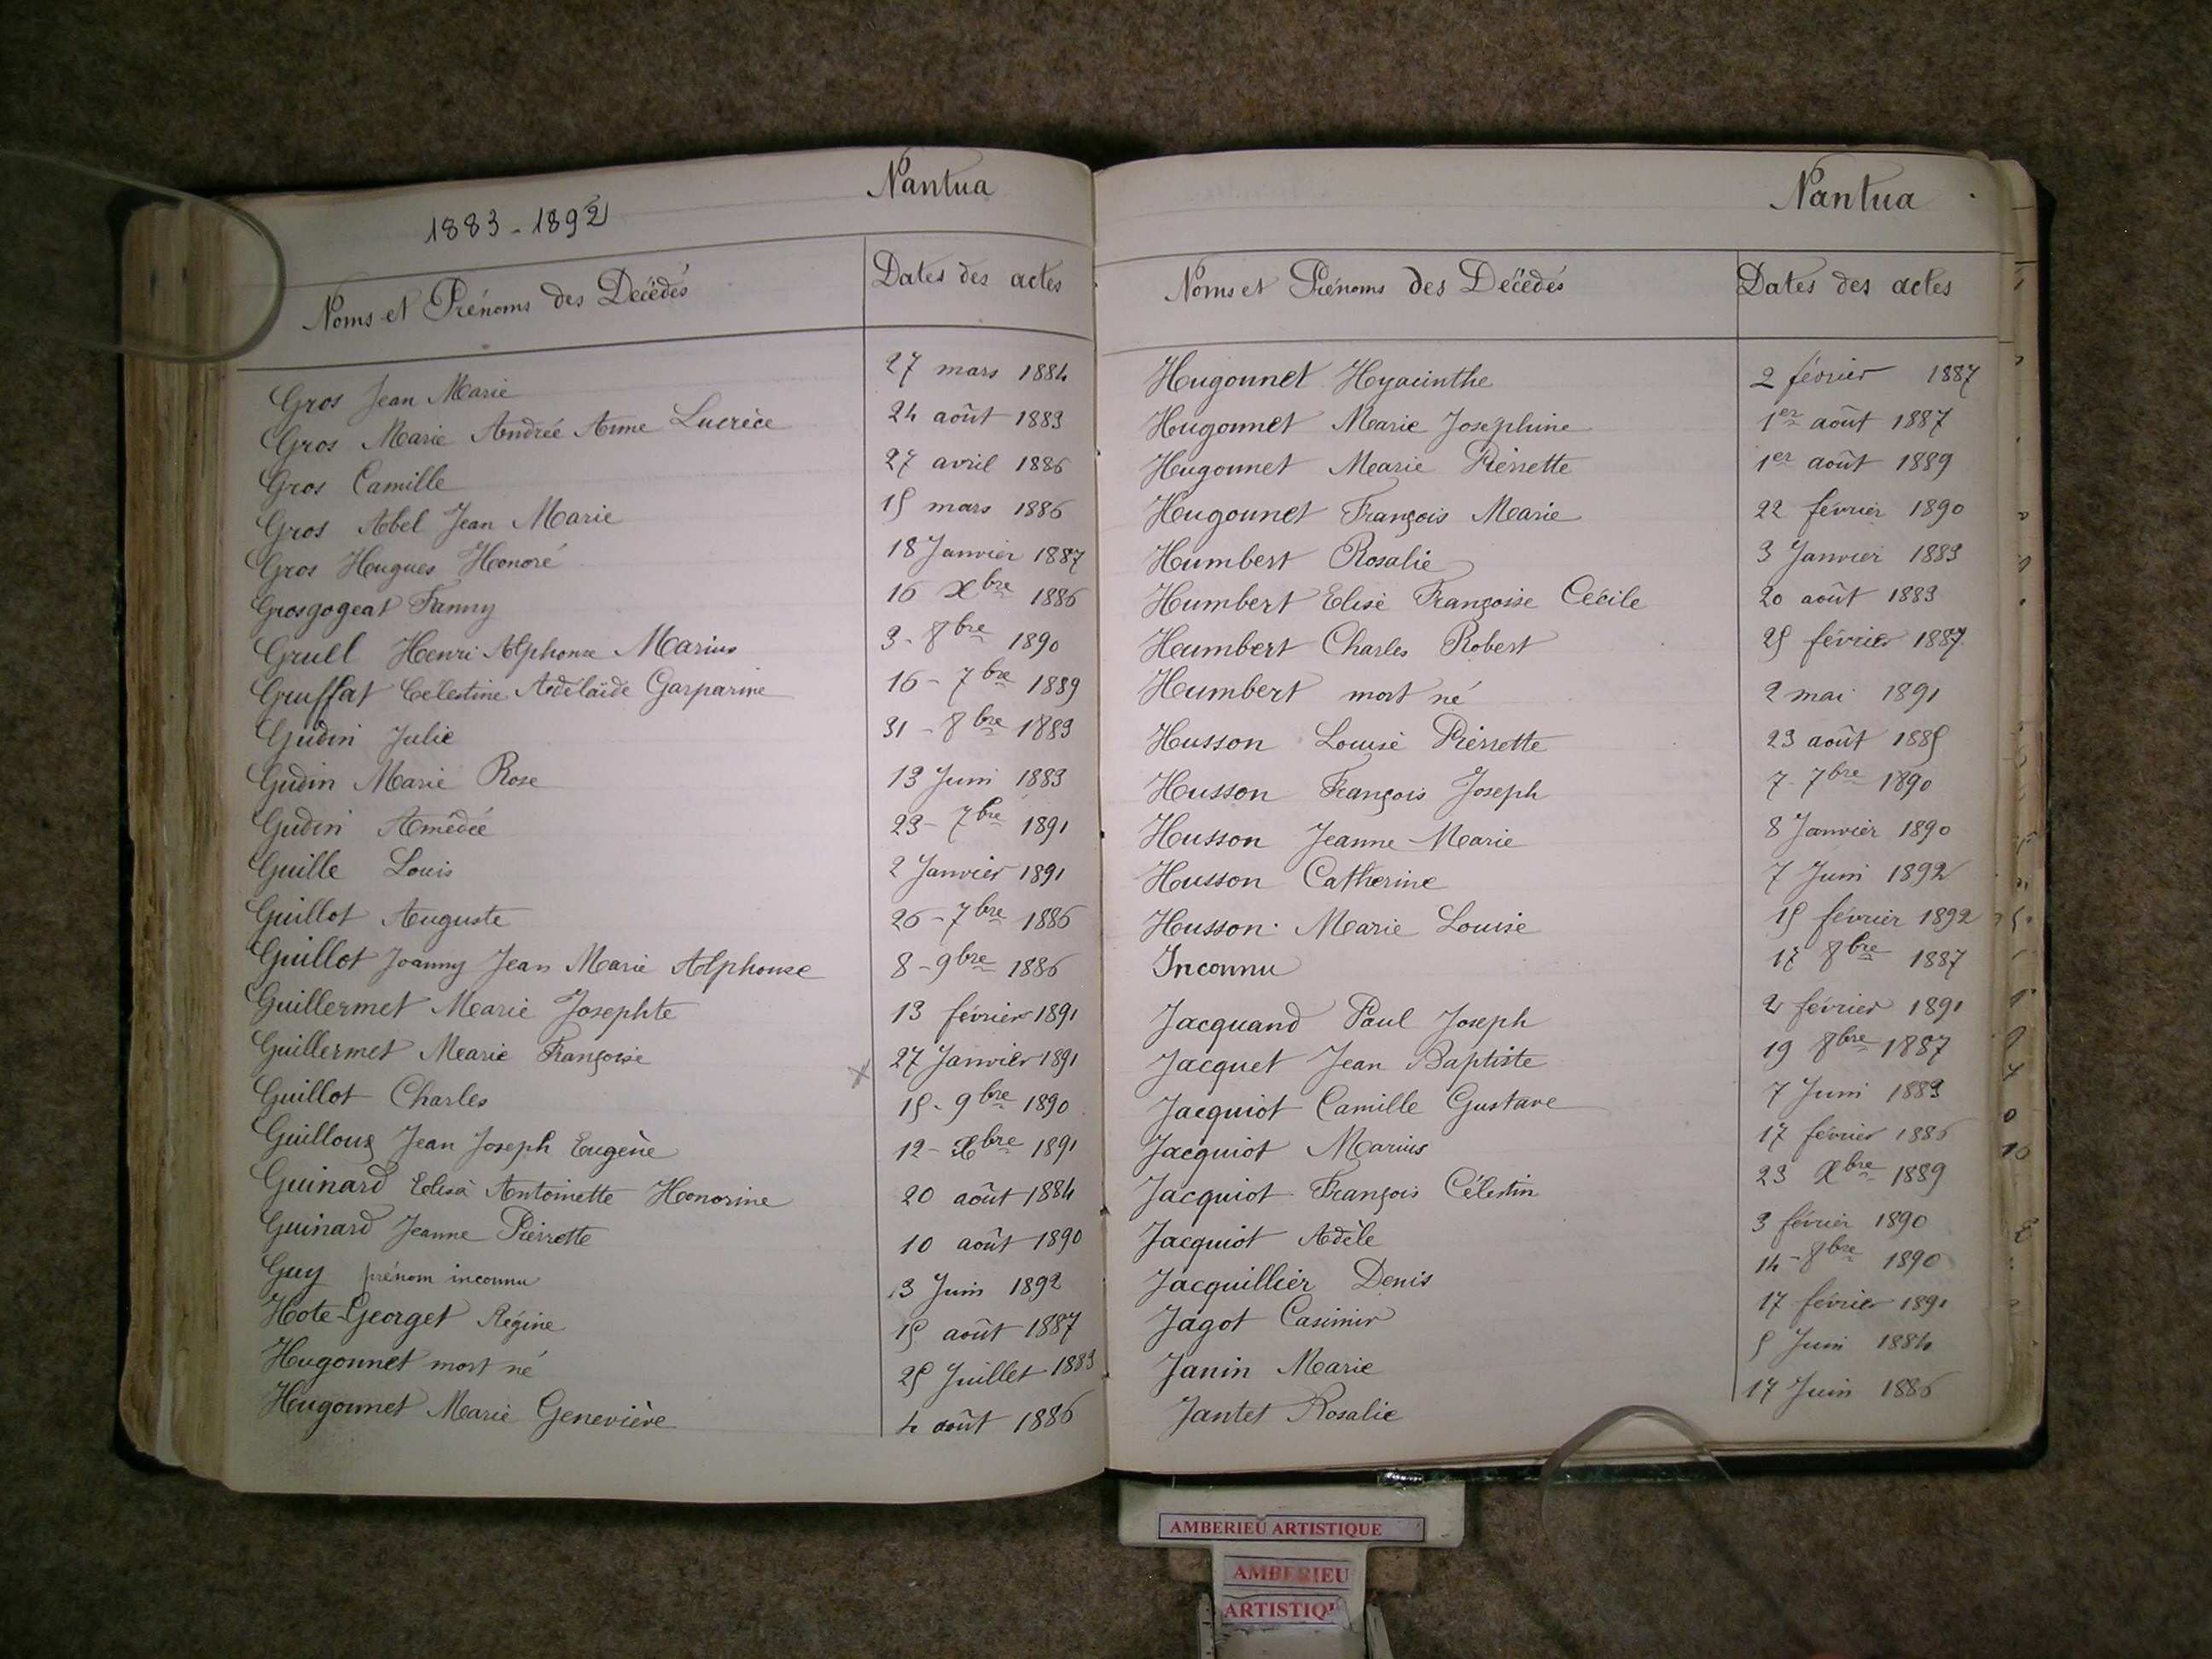 Nantua
1883-1892
Noms et Prénoms des Décédés Dates des actes
Gros Jean Marie 27 mars 1884
Gros Marie Andrée Anne Lucrèce 24 août 1883
Gros Camille 27 avril 1886
Gros Abel Jean Marie 15 mars 1886
Gros Hugues Honoré 18 Janvier 1887
Grosgogeat Fanny 16 Xbre 1886
Grull Henri Alphonse Marius 3-8bre 1890
Gruffat Célestine Adélaïde Gasparine 16-7bre 1889
Gudin Julie 31-8bre 1883
Gudin Marie Rose 13 Juin 1883
Gudin Amédée 23-7bre 1891
Guille Louis 2 Janvier 1891
Guillot Auguste 26-7bre 1886
Guillot Joanny Jean Marie Alphonse 8-9bre 1886
Guillermet Marie Josephte 13 février 1891
Guillermet Marie Françoise 27 Janvier 1891
Guillot Charles 15-9bre 1890
Guilloux Jean Joseph Eugène 12-Xbre 1891
Guinard Elisa Antoinette Honorine 20 août 1884
Guinard Jeanne Pierrette 10 août 1890
Guy prénom inconnu 13 Juin 1892
Hote-Georget Régine 15 août 1887
Hugonnet mort né 25 Juillet 1883
Hugonnet Marie Geneviève 4 août 1886
Nantua
Noms et Prénoms des Décédés Dates des actes
Hugonnet Hyacinthe 2 février 1887
Hugonnet Marie Josephine 1er août 1887
Hugonnet Marie Pierrette 1er août 1889
Hugonnet François Marie 22 février 1890
Humbert Rosalie 3 Janvier 1883
Humbert Elise Françoise Cécile 20 août 1883
Humbert Charles Robert 25 février 1887
Humbert mort né 2 mai 1891
Husson Louise Pierrette 23 août 1885
Husson François Joseph 7-7bre 1890
Husson Jeanne-Marie 8 Janvier 1890
Husson Catherine 7 Juin 1892
Husson Marie Louise 15 février 1892
Inconnu 17 8bre 1887
Jacquand Paul Joseph 2 février 1891
Jacquet Jean Baptiste 19 8bre 1887
Jacquiot Camille Gustave 7 Juin 1883
Jacquiot Marius 17 février 1886
Jacquiot François Célestin 23 Xbre 1889
Jacquiot Adèle 3 février 1890
Jacquillier Denis 14-8bre 1890
Jagot Casimir 17 février 1891
Janin Marie 5 Juin 1884
Jantet Rosalie 17 Juin 1886
AMBERIEU ARTISTIQUE
AMBERIEU
ARTISTIQ